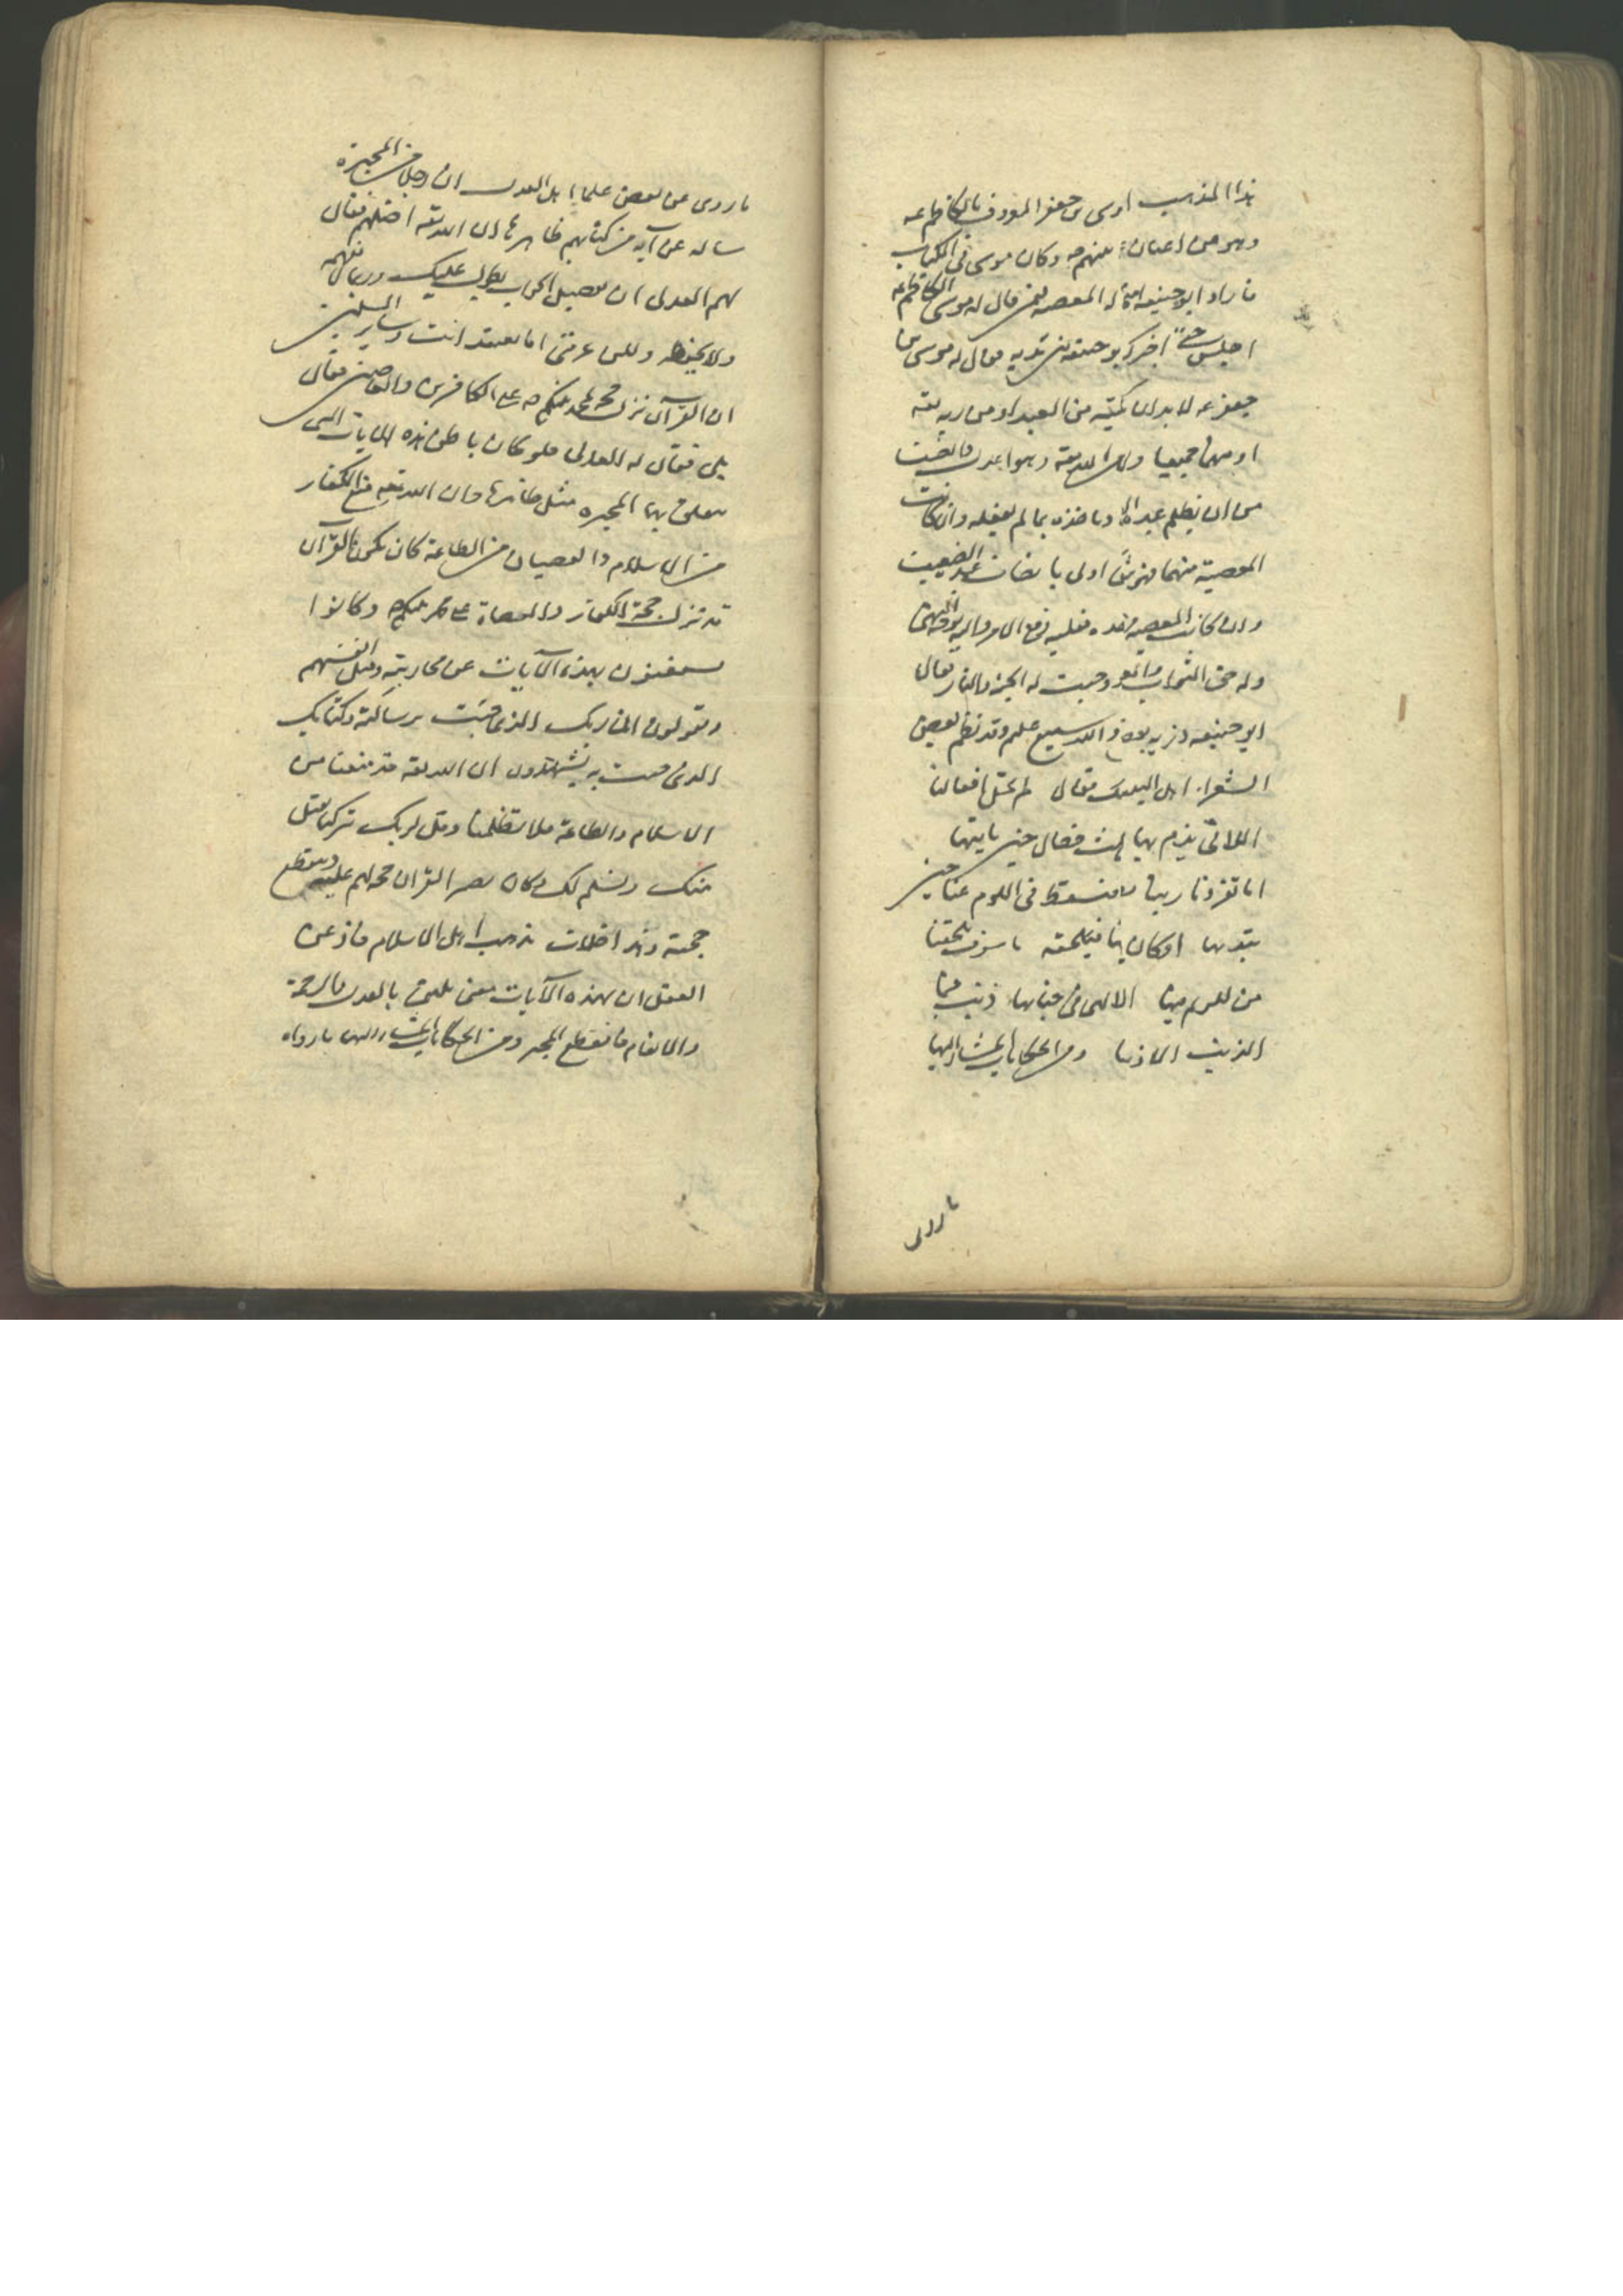 هذا المذهب اوسى بن جعفر المعروف بالكاظم عه
وهو من اعيان منهم وكان موسى في الكتاب
فاراد ابو حنيفه المعصيه ممن قال له موسى الكاظم عه
اجلس حتى اخبرك ابو حنيفه بين يديه فقال له موسى بن
جعفر عه لا بد ان يكون من العبد او من ربه تعه
او منهما جميعا وان الله تعه وهو اعدل وانصف
من ان يظلم عبده وياخذه بما لم يفعله وان كانت
المعصية منهما فهو شريكه اولى بانصاف عبده الضعيف
وان كانت المعصيه منه فعليه وقع الامر واليه توجه النهى
وله حق الثواب والعقاب ووجبت له الجنة والنار فقال
ابو حنيفه ذريه بعضها والله سميع عليم وقد نظم بعض
الشعرا اهل البيت فقال لم تخل افعالنا
اللاتي يذم بها احدى ثلث خصال حين ناتيها
اما تفرد نا ربنا فيسقط في اللوم عنا حين
نبتديها او كان يشركنا فيلحقه ما سوف يلحقنا
من لايم فيها او لم يكن لالهى في جنايتها ذنب فما
الذنب الا ذنب جانيها ومن الحكايات المشار اليها
ما روى
ما روى عن بعض علماء اهل العدل ان رجلا من المجبرة
ساله عن آيه من كتابهم ظاهرها ان الله تعه اضلهم فقال
لهم العدلى ان تفصيل الجواب يطول عليك وربما لا تفهمه
ولا تحفظه ولكن عرفني اما تعتقد انت وساير المسلمين
ان القرآن نزل حجة لمحمد نبيكم صه على الكافرين والعاصين فقال
بلى فقال له العدلى فلو كان باطن هذه الايات التى
يتعلق بها المجبره مثل ظاهرها وان الله تعه منع الكفار
من الاسلام والعصيان من الطاعة كان يكون القرآن
قد نزل حجة الكفار والعصاة على محمد نبيكم وكانوا
يستغنون بهذه الآيات عن محاربته وقتل انفسهم
ويقولون ان ربك الذى جئت برسالته وكتابك
الذى جئت به يشهدون ان الله تعه قد منعنا من
الاسلام والطاعة فلا تظلمنا وقل لربك يتركنا نقبل
منك ونسلم لك وكان يصير القرآن حجة لهم عليه ويقطع
حجته وهذا خلاف مذهب اهل الاسلام فاذعن
العقل ان لهذه الآيات معنى يليق بالعدل والرحمة
والانعام فانقطع المجبر ومن الحكايات المشار اليها ما رواه